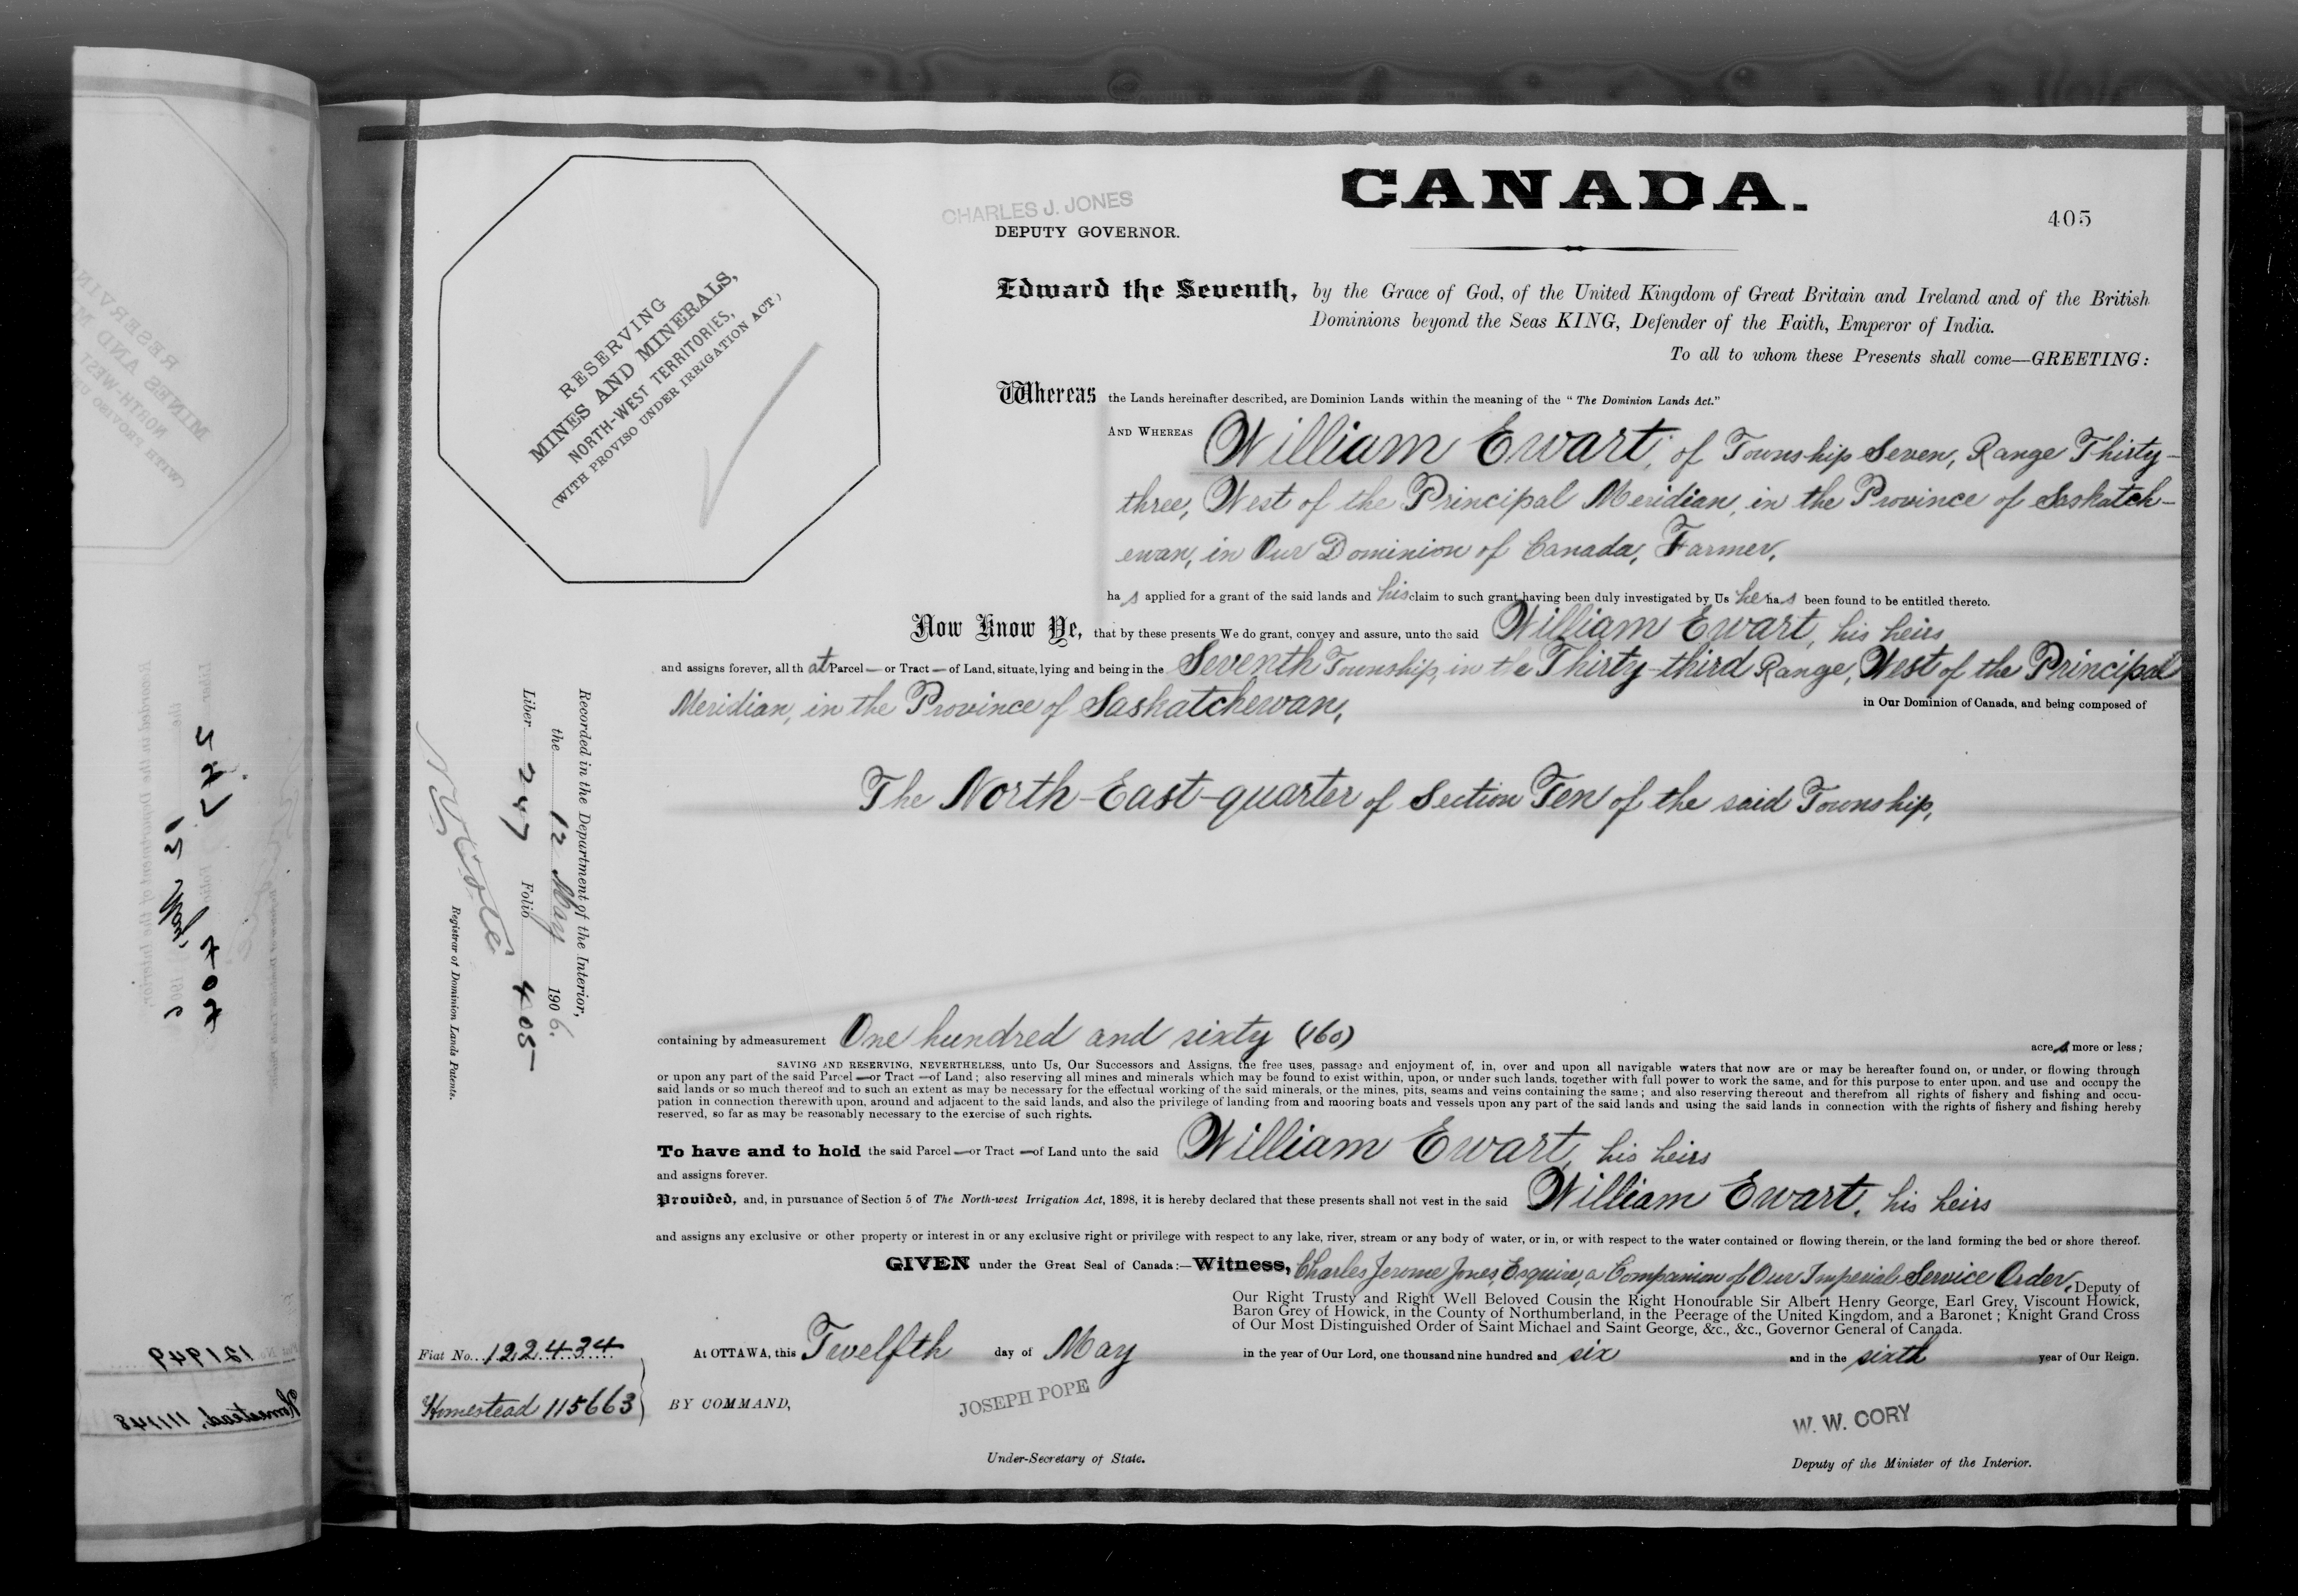 CANADA.
CHARLES J. JONES
DEPUTY GOVERNOR.
405
RESERVING
MINES AND MINERALS,
NORTH-WEST TERRITORIES,
(WITH PROVISO UNDER IRRIGATION ACT)
Edward the Seventh, by the Grace of God, of the United Kingdom of Great Britain and Ireland and of the British
Dominions beyond the Seas KING, Defender of the Faith, Emperor of India.
To all to whom these Presents shall come—GREETING:
Whereas the Lands hereinafter described, are Dominion Lands within the meaning of the "The Dominion Lands Act."
AND WHEREAS William Ewart, of Township Seven, Range Thirty-
three, West of the Principal Meridian, in the Province of Saskatch-
ewan, in Our Dominion of Canada, Farmer,
has applied for a grant of the said lands and his claim to such grant having been duly investigated by Us he has been found to be entitled thereto.
Now Know Ye, that by these presents We do grant, convey and assure, unto the said William Ewart, his heirs
and assigns forever, all that Parcel — or Tract — of Land, situate, lying and being in the Seventh Township, in the Thirty-third Range, West of the Principal
Meridian, in the Province of Saskatchewan, in Our Dominion of Canada, and being composed of
The North-East-quarter of Section Ten of the said Township,
containing by admeasurement One hundred and sixty (160) acres more or less;
SAVING AND RESERVING, NEVERTHELESS, unto Us, Our Successors and Assigns, the free uses, passage and enjoyment of, in, over and upon all navigable waters that now are or may be hereafter found on, or under, or flowing through
or upon any part of the said Parcel — or Tract — of Land; also reserving all mines and minerals which may be found to exist within, upon, or under such lands, together with full power to work the same, and for this purpose to enter upon, and use and occupy the
said lands or so much thereof and to such an extent as may be necessary for the effectual working of the said minerals, or the mines, pits, seams and veins containing the same; and also reserving thereout and therefrom all rights of fishery and fishing and occu-
pation in connection therewith upon, around and adjacent to the said lands, and also the privilege of landing from and mooring boats and vessels upon any part of the said lands and using the said lands in connection with the rights of fishery and fishing hereby
reserved, so far as may be reasonably necessary to the exercise of such rights.
To have and to hold the said Parcel — or Tract — of Land unto the said William Ewart, his heirs
and assigns forever.
Provided, and, in pursuance of Section 5 of The North-west Irrigation Act, 1898, it is hereby declared that these presents shall not vest in the said William Ewart, his heirs
and assigns any exclusive or other property or interest in or any exclusive right or privilege with respect to any lake, river, stream or any body of water, or in, or with respect to the water contained or flowing therein, or the land forming the bed or shore thereof.
GIVEN under the Great Seal of Canada:—Witness, Charles Jerome Jones, Esquire, a Companion of Our Imperial Service Order, Deputy of
Our Right Trusty and Right Well Beloved Cousin the Right Honourable Sir Albert Henry George, Earl Grey, Viscount Howick,
Baron Grey of Howick, in the County of Northumberland, in the Peerage of the United Kingdom, and a Baronet; Knight Grand Cross
of Our Most Distinguished Order of Saint Michael and Saint George, &c., &c., Governor General of Canada.
At OTTAWA, this Twelfth day of May in the year of Our Lord, one thousand nine hundred and six and in the sixth year of Our Reign.
BY COMMAND,
JOSEPH POPE
Under-Secretary of State.
W. W. CORY
Deputy of the Minister of the Interior.
Fiat No. 122434
Homestead 115663
Recorded in the Department of the Interior,
the 12 May 1906.
Liber 247 Folio 405
Registrar of Dominion Lands Patents.
121949
Homestead, 111148